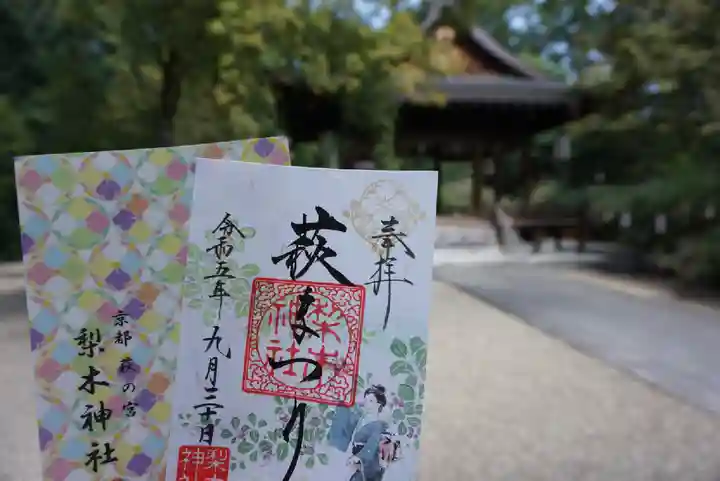 奉拝
萩まつり
梨木神社
令和五年九月二十日
梨木神社
京都 萩の宮
梨木神社